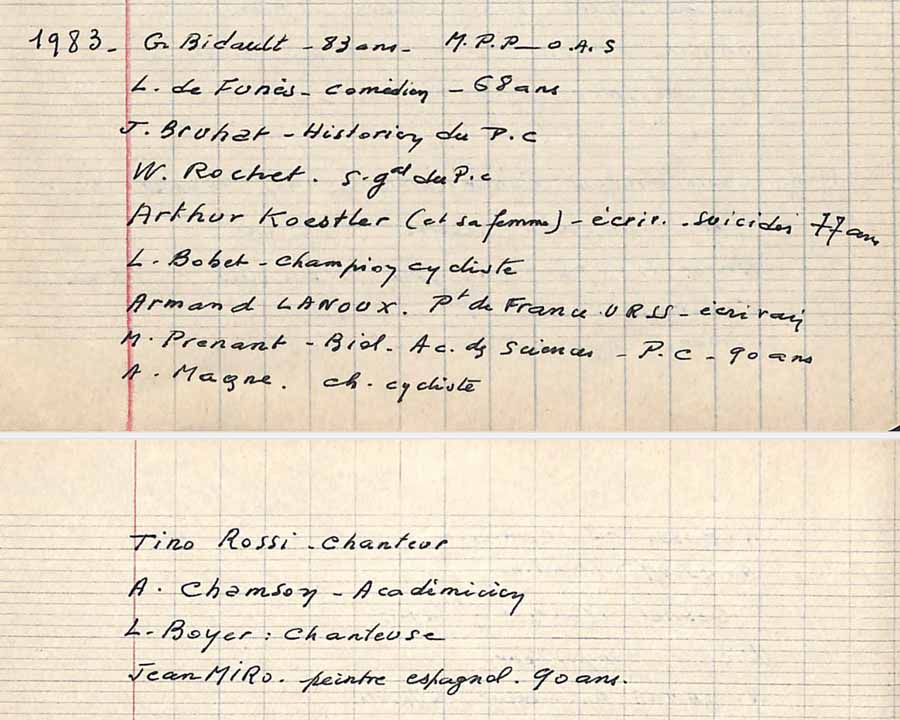 1983_ G. Bidault - 83 ans - M.P.P _ O.A.S
L. de Funès - comédien - 68 ans
J. Bruhat - Historien du P.C
W. Rochet. S. gal du P.C
Arthur Koestler (et sa femme) - écriv. - suicidés 77 ans
L. Bobet - champion cycliste
Armand LANOUX. Pt de France URSS - écrivain
M. Prenant - Biol. Ac. ds Sciences - P.C - 90 ans
A. Magne. ch. cycliste
Tino Rossi - chanteur
A. Chamson - Académicien
L. Boyer : chanteuse
Jean MiRo. peintre espagnol. 90 ans.